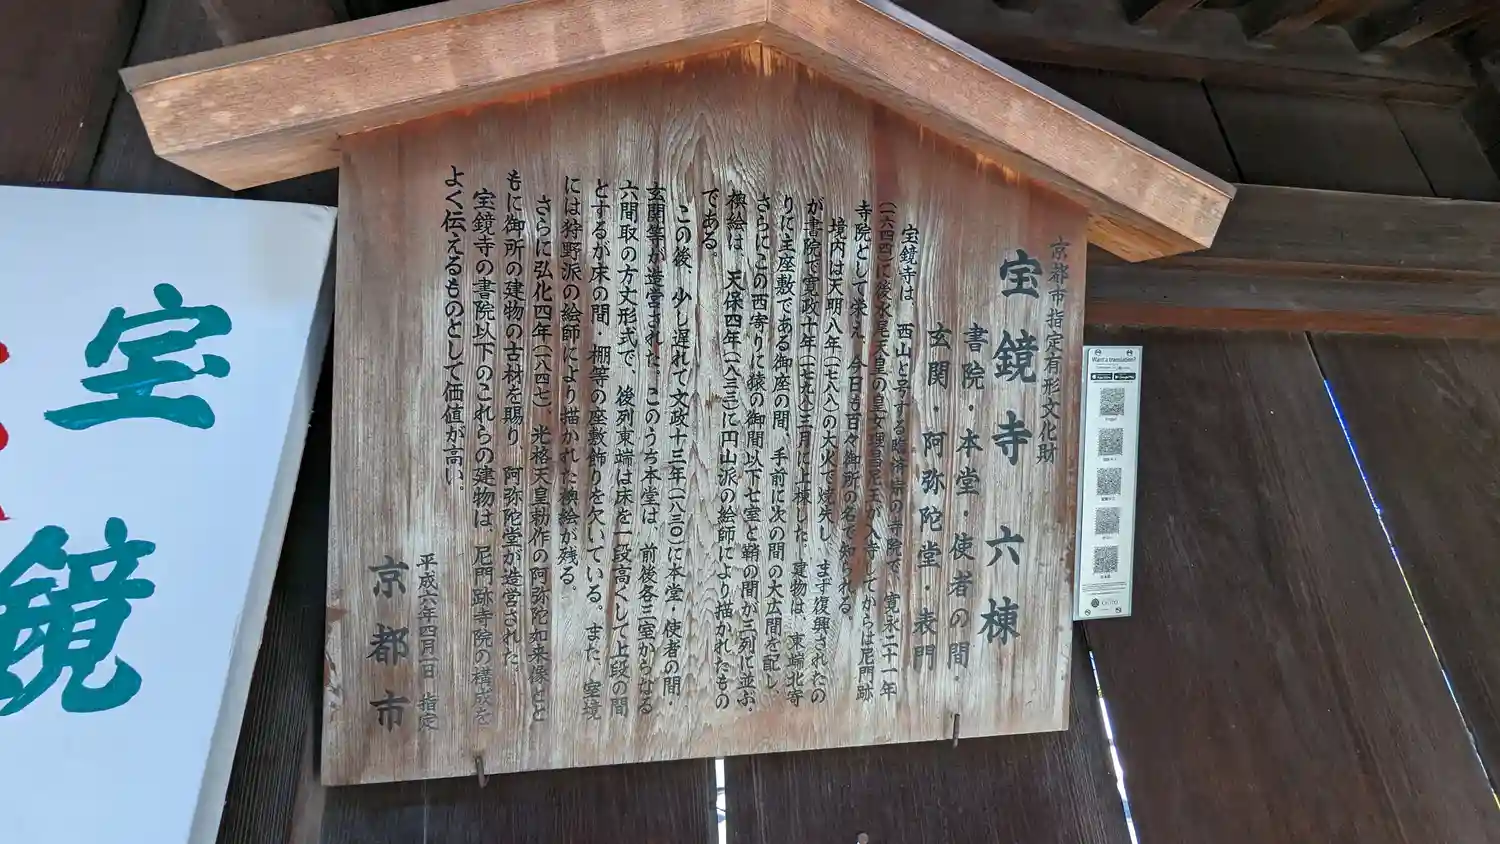 京都市指定有形文化財
宝鏡寺 六棟
書院・本堂・使者の間・
玄関・阿弥陀堂・表門
宝鏡寺は、西山と号する臨済宗の寺院で、寛永二十一年
(一六四四)に後水尾天皇の皇女理昌尼王が入寺してからは尼門跡
寺院として栄え、今日も百々御所の名で知られる。
境内は天明八年(一七八八)の大火で焼失し、まず復興されたの
が書院で寛政十年(一七九八)三月に上棟した。建物は、東端北寄
りに主座敷である御座の間、手前に次の間の大広間を配し、
さらにこの西寄りに猿の御間以下七室と鞘の間が三列に並ぶ。
襖絵は、天保四年(一八三三)に円山派の絵師により描かれたもの
である。
この後、少し遅れて文政十三年(一八三〇)に本堂・使者の間・
玄関等が造営された。このうち本堂は、前後各三室からなる
六間取の方丈形式で、後列東端は床を一段高くして上段の間
とするが床の間、棚等の座敷飾りを欠いている。また、室境
には狩野派の絵師により描かれた襖絵が残る。
さらに弘化四年(一八四七)、光格天皇勅作の阿弥陀如来像とと
もに御所の建物の古材を賜り、阿弥陀堂が造営された。
宝鏡寺の書院以下のこれらの建物は、尼門跡寺院の構成を
よく伝えるものとして価値が高い。
平成六年四月一日 指定
京都市
宝鏡
Want a translation?